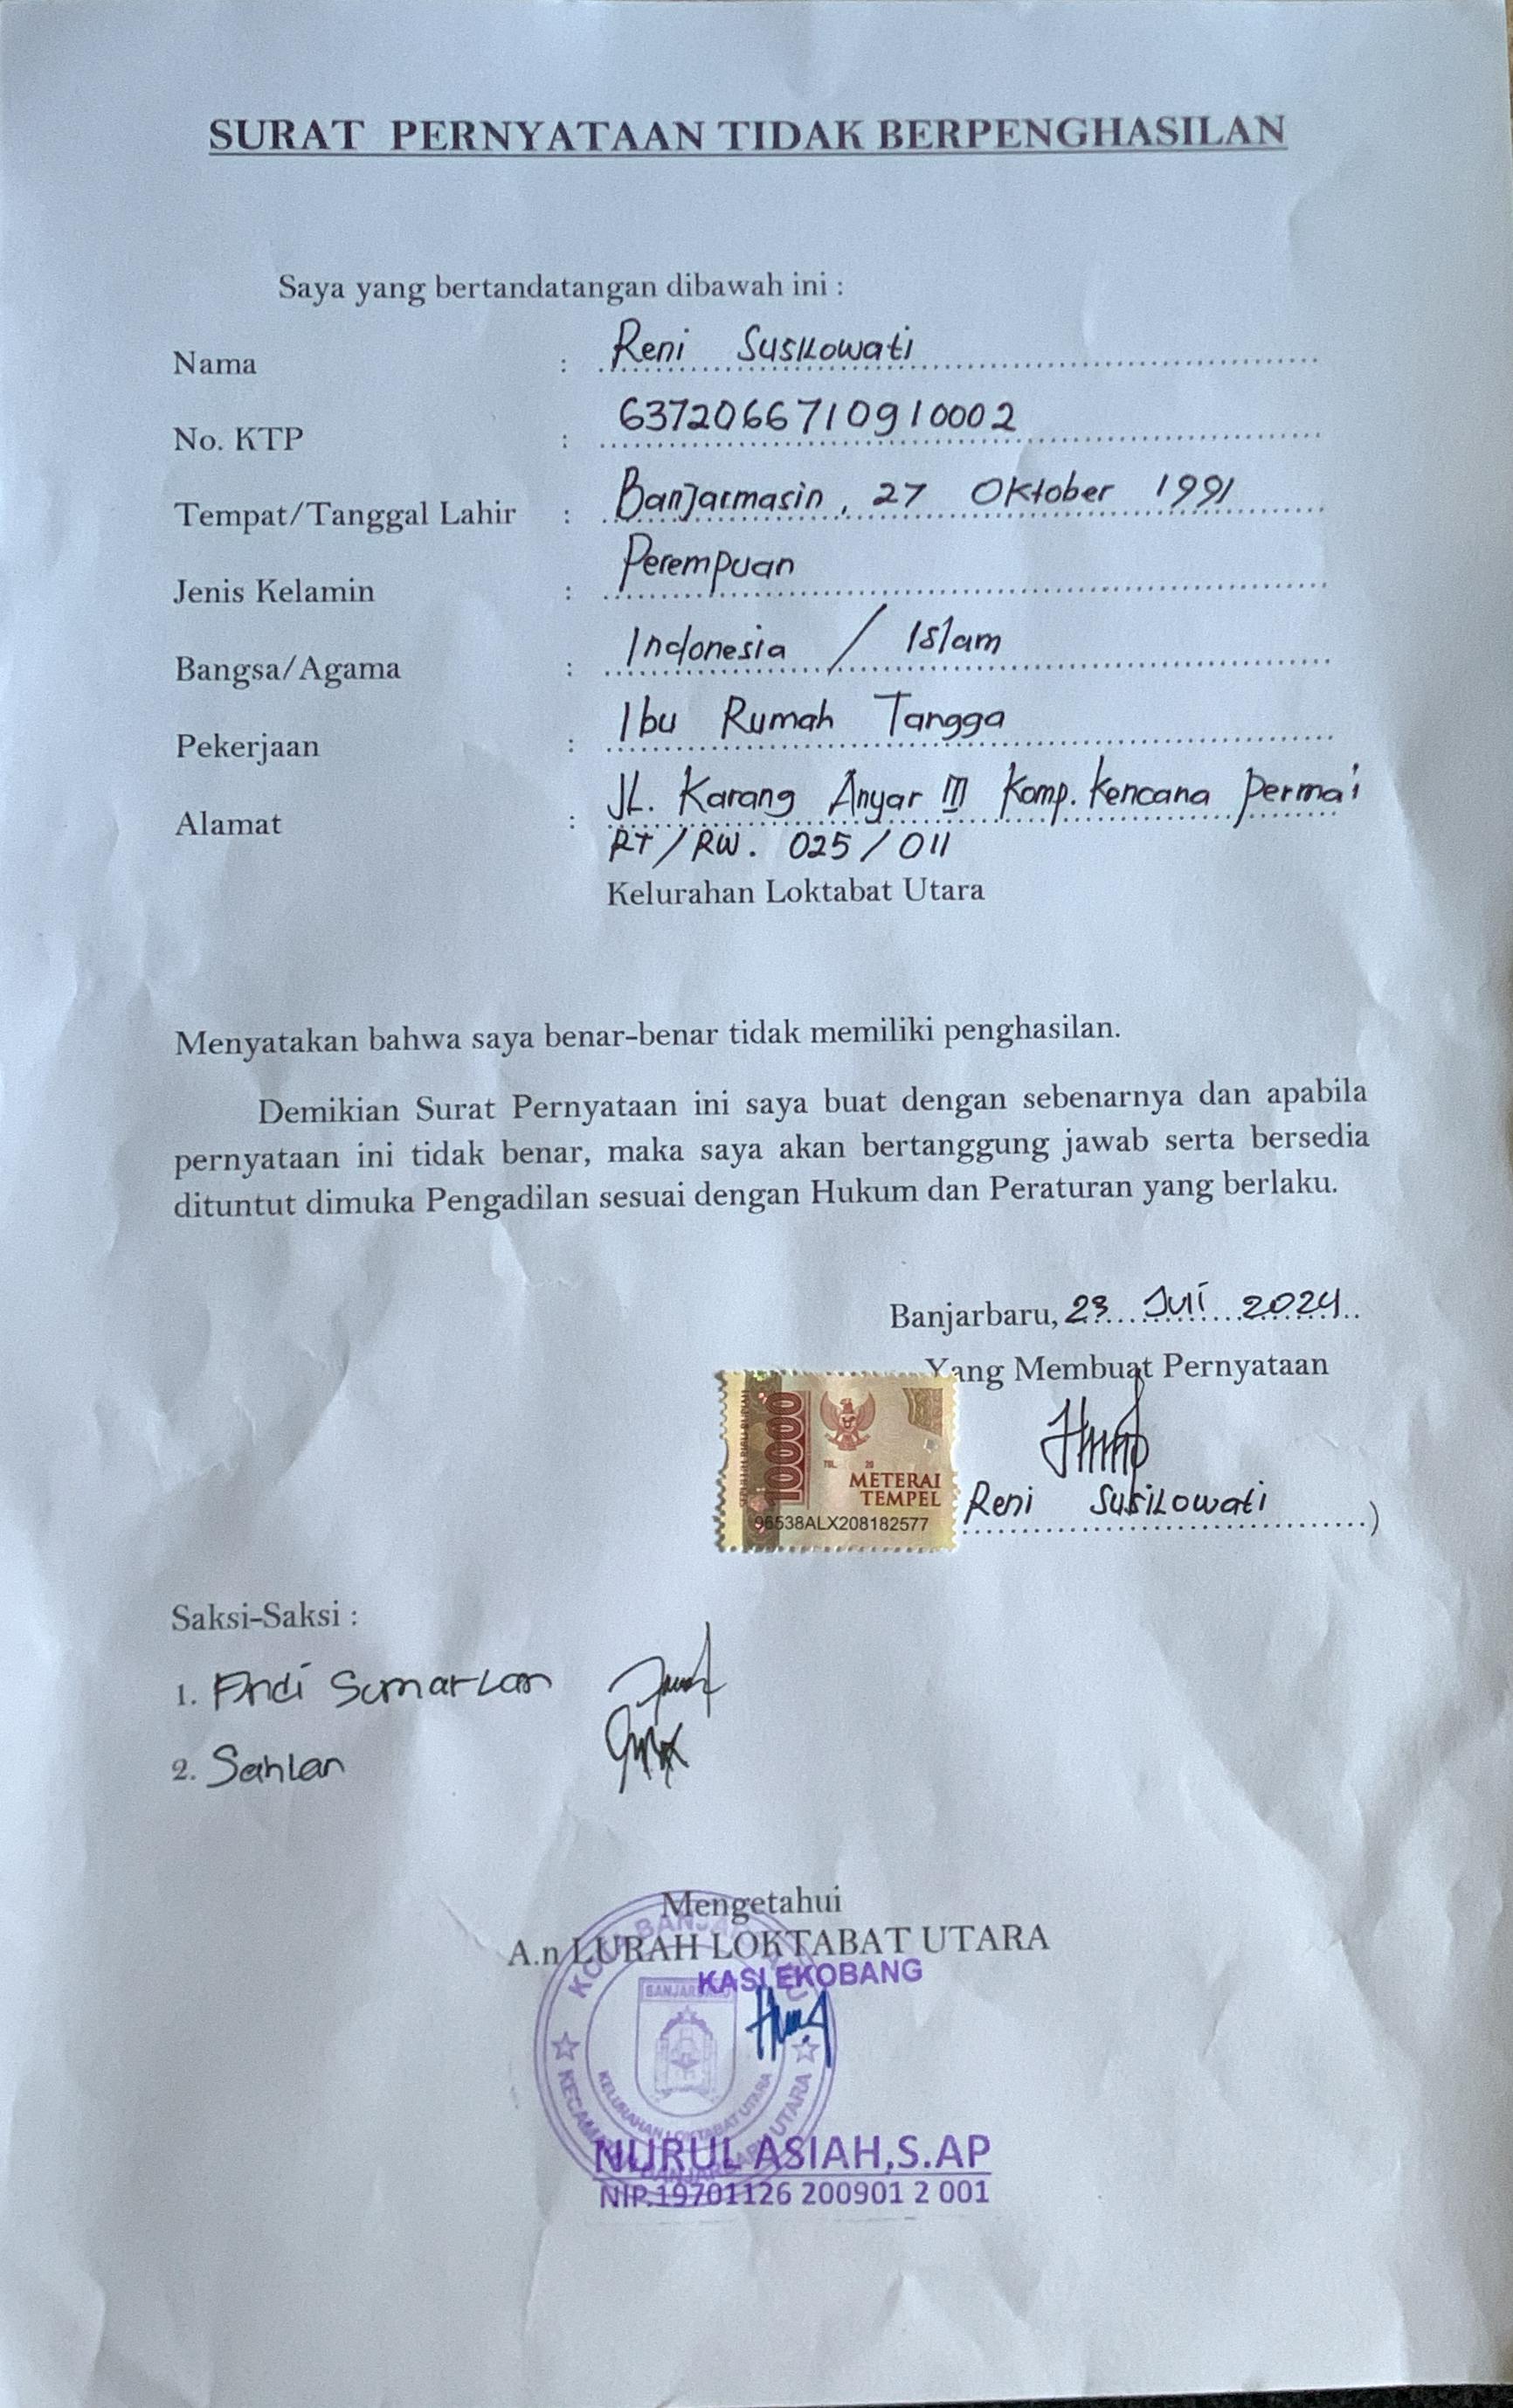 SURAT PERNYATAAN TIDAK BERPENGHASILAN
Saya yang bertandatangan dibawah ini :
Nama : Reni Susilowati
No. KTP : 6372066710910002
Tempat/Tanggal Lahir : Banjarmasin, 27 Oktober 1991
Jenis Kelamin : Perempuan
Bangsa/Agama : Indonesia / Islam
Pekerjaan : Ibu Rumah Tangga
Alamat : JL. Karang Anyar III Komp. Kencana Permai
RT/RW. 025/011
Kelurahan Loktabat Utara
Menyatakan bahwa saya benar-benar tidak memiliki penghasilan.
Demikian Surat Pernyataan ini saya buat dengan sebenarnya dan apabila
pernyataan ini tidak benar, maka saya akan bertanggung jawab serta bersedia
dituntut dimuka Pengadilan sesuai dengan Hukum dan Peraturan yang berlaku.
Banjarbaru, 23 Juli 2024
Yang Membuat Pernyataan
10000
TGL. 20
METERAI
TEMPEL
96538ALX208182577
Reni Susilowati )
Saksi-Saksi :
1. Andi Sumarlan
2. Sahlan
Mengetahui
A.n LURAH LOKTABAT UTARA
KASI EKOBANG
KELURAHAN LOKTABAT UTARA
NURUL ASIAH,S.AP
NIP.19701126 200901 2 001